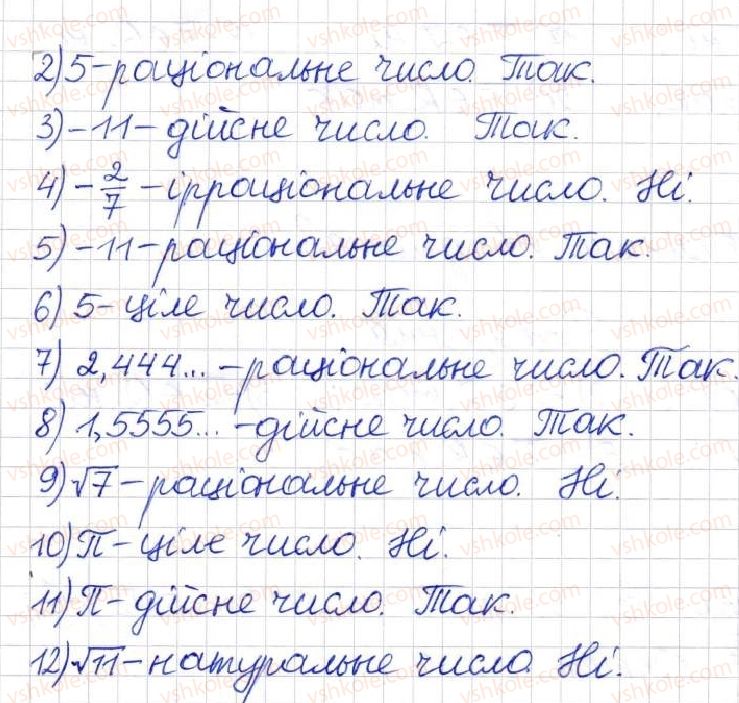 2) 5 - раціональне число. Так.
3) -11 - дійсне число. Так.
4) -2/7 - ірраціональне число. Ні.
5) -11 - раціональне число. Так.
6) 5 - ціле число. Так.
7) 2,444... - раціональне число. Так.
8) 1,5555... - дійсне число. Так.
9) √7 - раціональне число. Ні.
10) π - ціле число. Ні.
11) π - дійсне число. Так.
12) √11 - натуральне число. Ні.